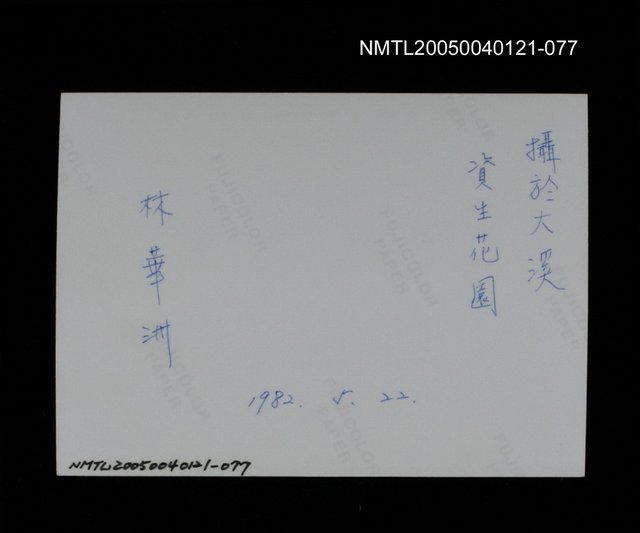 NMTL20050040121-077
攝於大溪
資生花園
林華洲
1982. 5. 22.
NMTL20050040121-077
FUJICOLOR
PAPER
FUJICOLOR
PAPER
FUJICOLOR
PAPER